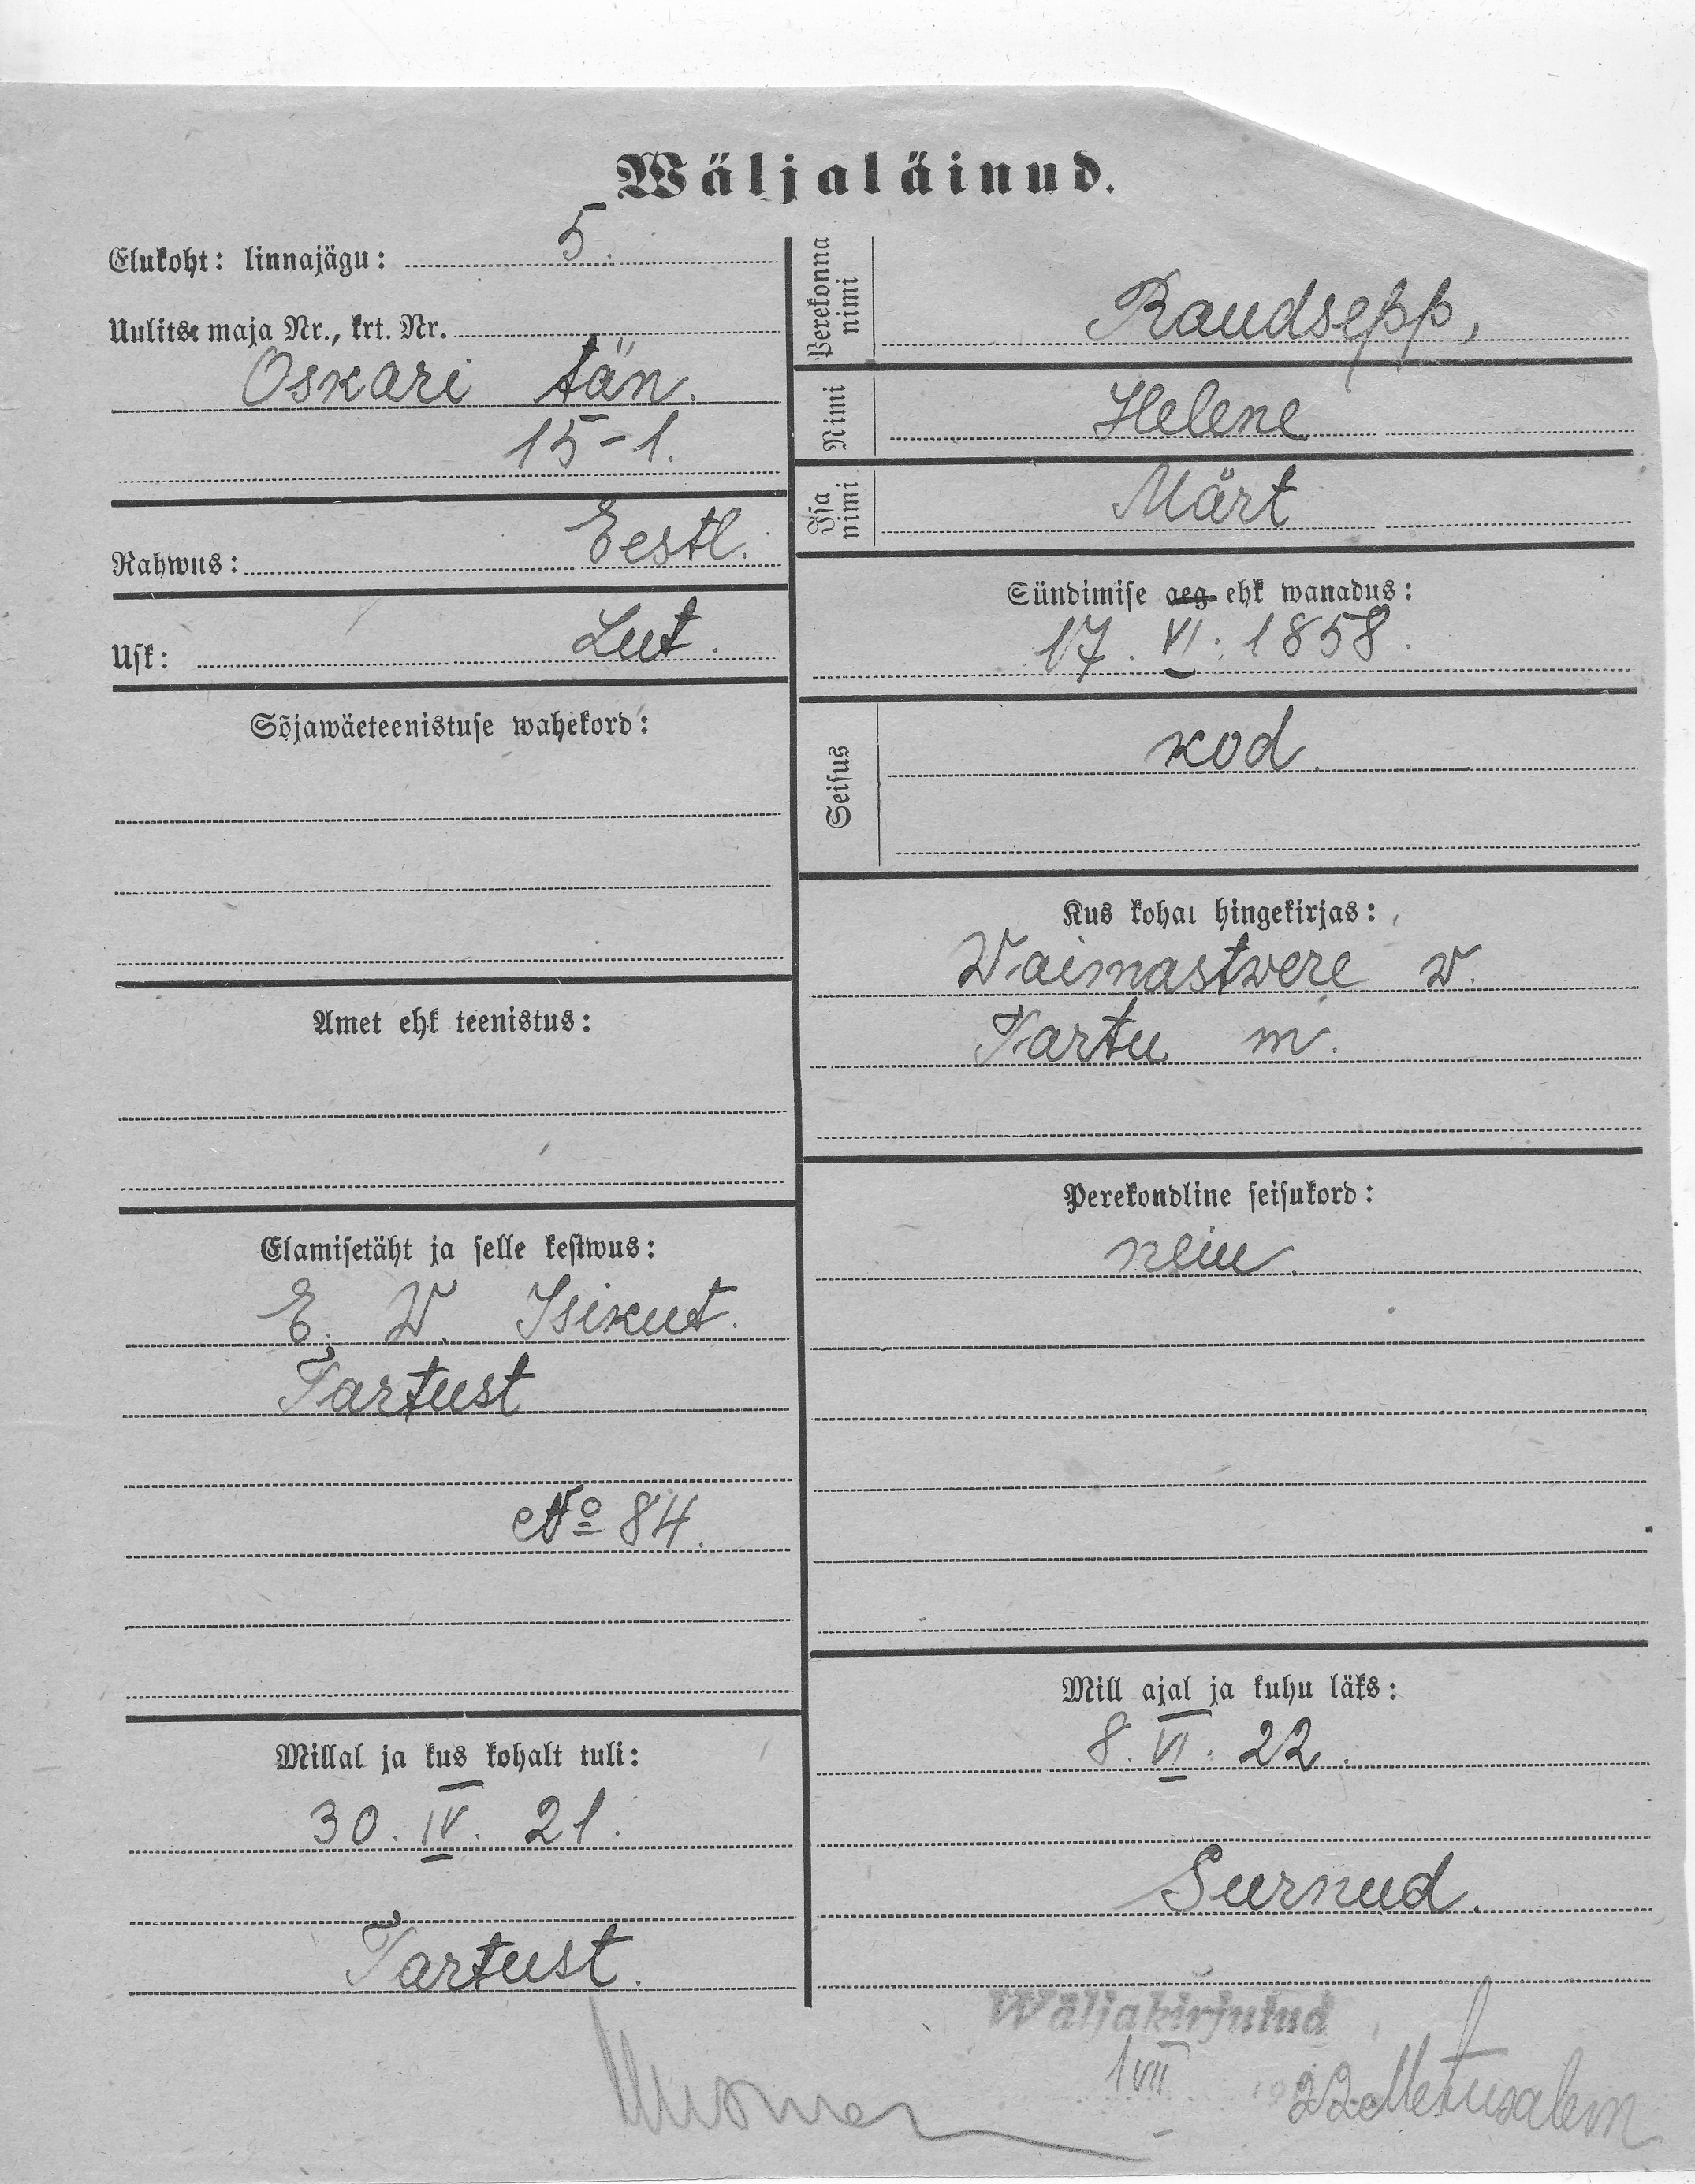 Wäljaläinud.
Elukoht: linnajägu: 5.
Uulitse maja Nr., krt. Nr.
Oskari tän.
15-1.
Rahwus: Eestl.
Usk: Lut.
Sõjawäeteenistuse wahekord:
Amet ehk teenistus:
Elamisetäht ja selle kestwus:
E. W. Isikut.
Tartust
№ 84.
Millal ja kus kohalt tuli:
30. IV. 21.
Tartust.
Perekonna nimi
Raudsepp,
Nimi
Helene
Isa nimi
Märt
Sündimise aeg ehk wanadus:
17. VI. 1858.
Seisus
kod.
Kus kohal hingekirjas:
Waimastwere w.
Tartu m.
Perekondline seisukord:
neiu.
Mill ajal ja kuhu läks:
8. VI. 22.
Surnud.
Wäljakirjutud
1 VII 22 Metusalem